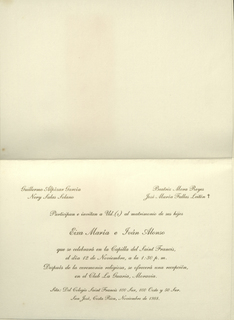 Guillermo Alpízar García
Nury Salas Solano
Beatriz Mesa Reyes
José Martín Fallas Leitón †
Participan e invitan a Ud.(s) al matrimonio de sus hijos
Elsa María e Iván Alonso
que se celebrará en la Capilla del Saint Francis,
el día 12 de Noviembre, a la 1:30 p. m.
Después de la ceremonia religiosa, se ofrecerá una recepción,
en el Club La Guaria, Moravia.
Sitio: Del Colegio Saint Francis 100 Sur, 100 Oeste y 50 Sur.
San José, Costa Rica, Noviembre de